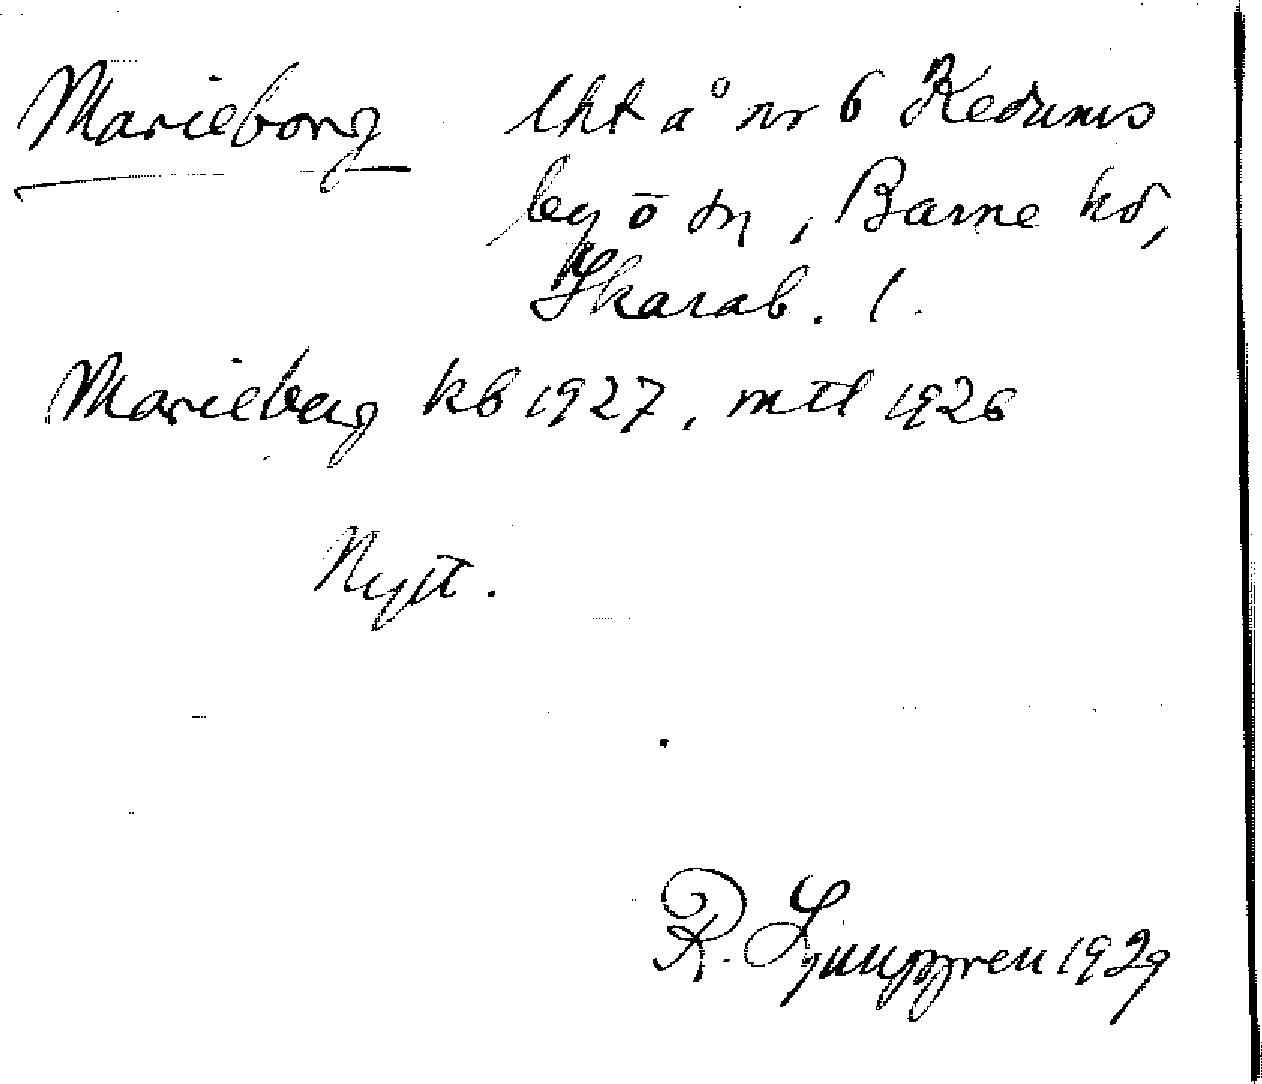 Marieborg lht å nr 6 Kedums
by o sn, Barne hd,
Skarab. l.
Marieberg kb 1927, mtl 1926
Nytt.
R. Ljunggren 1929